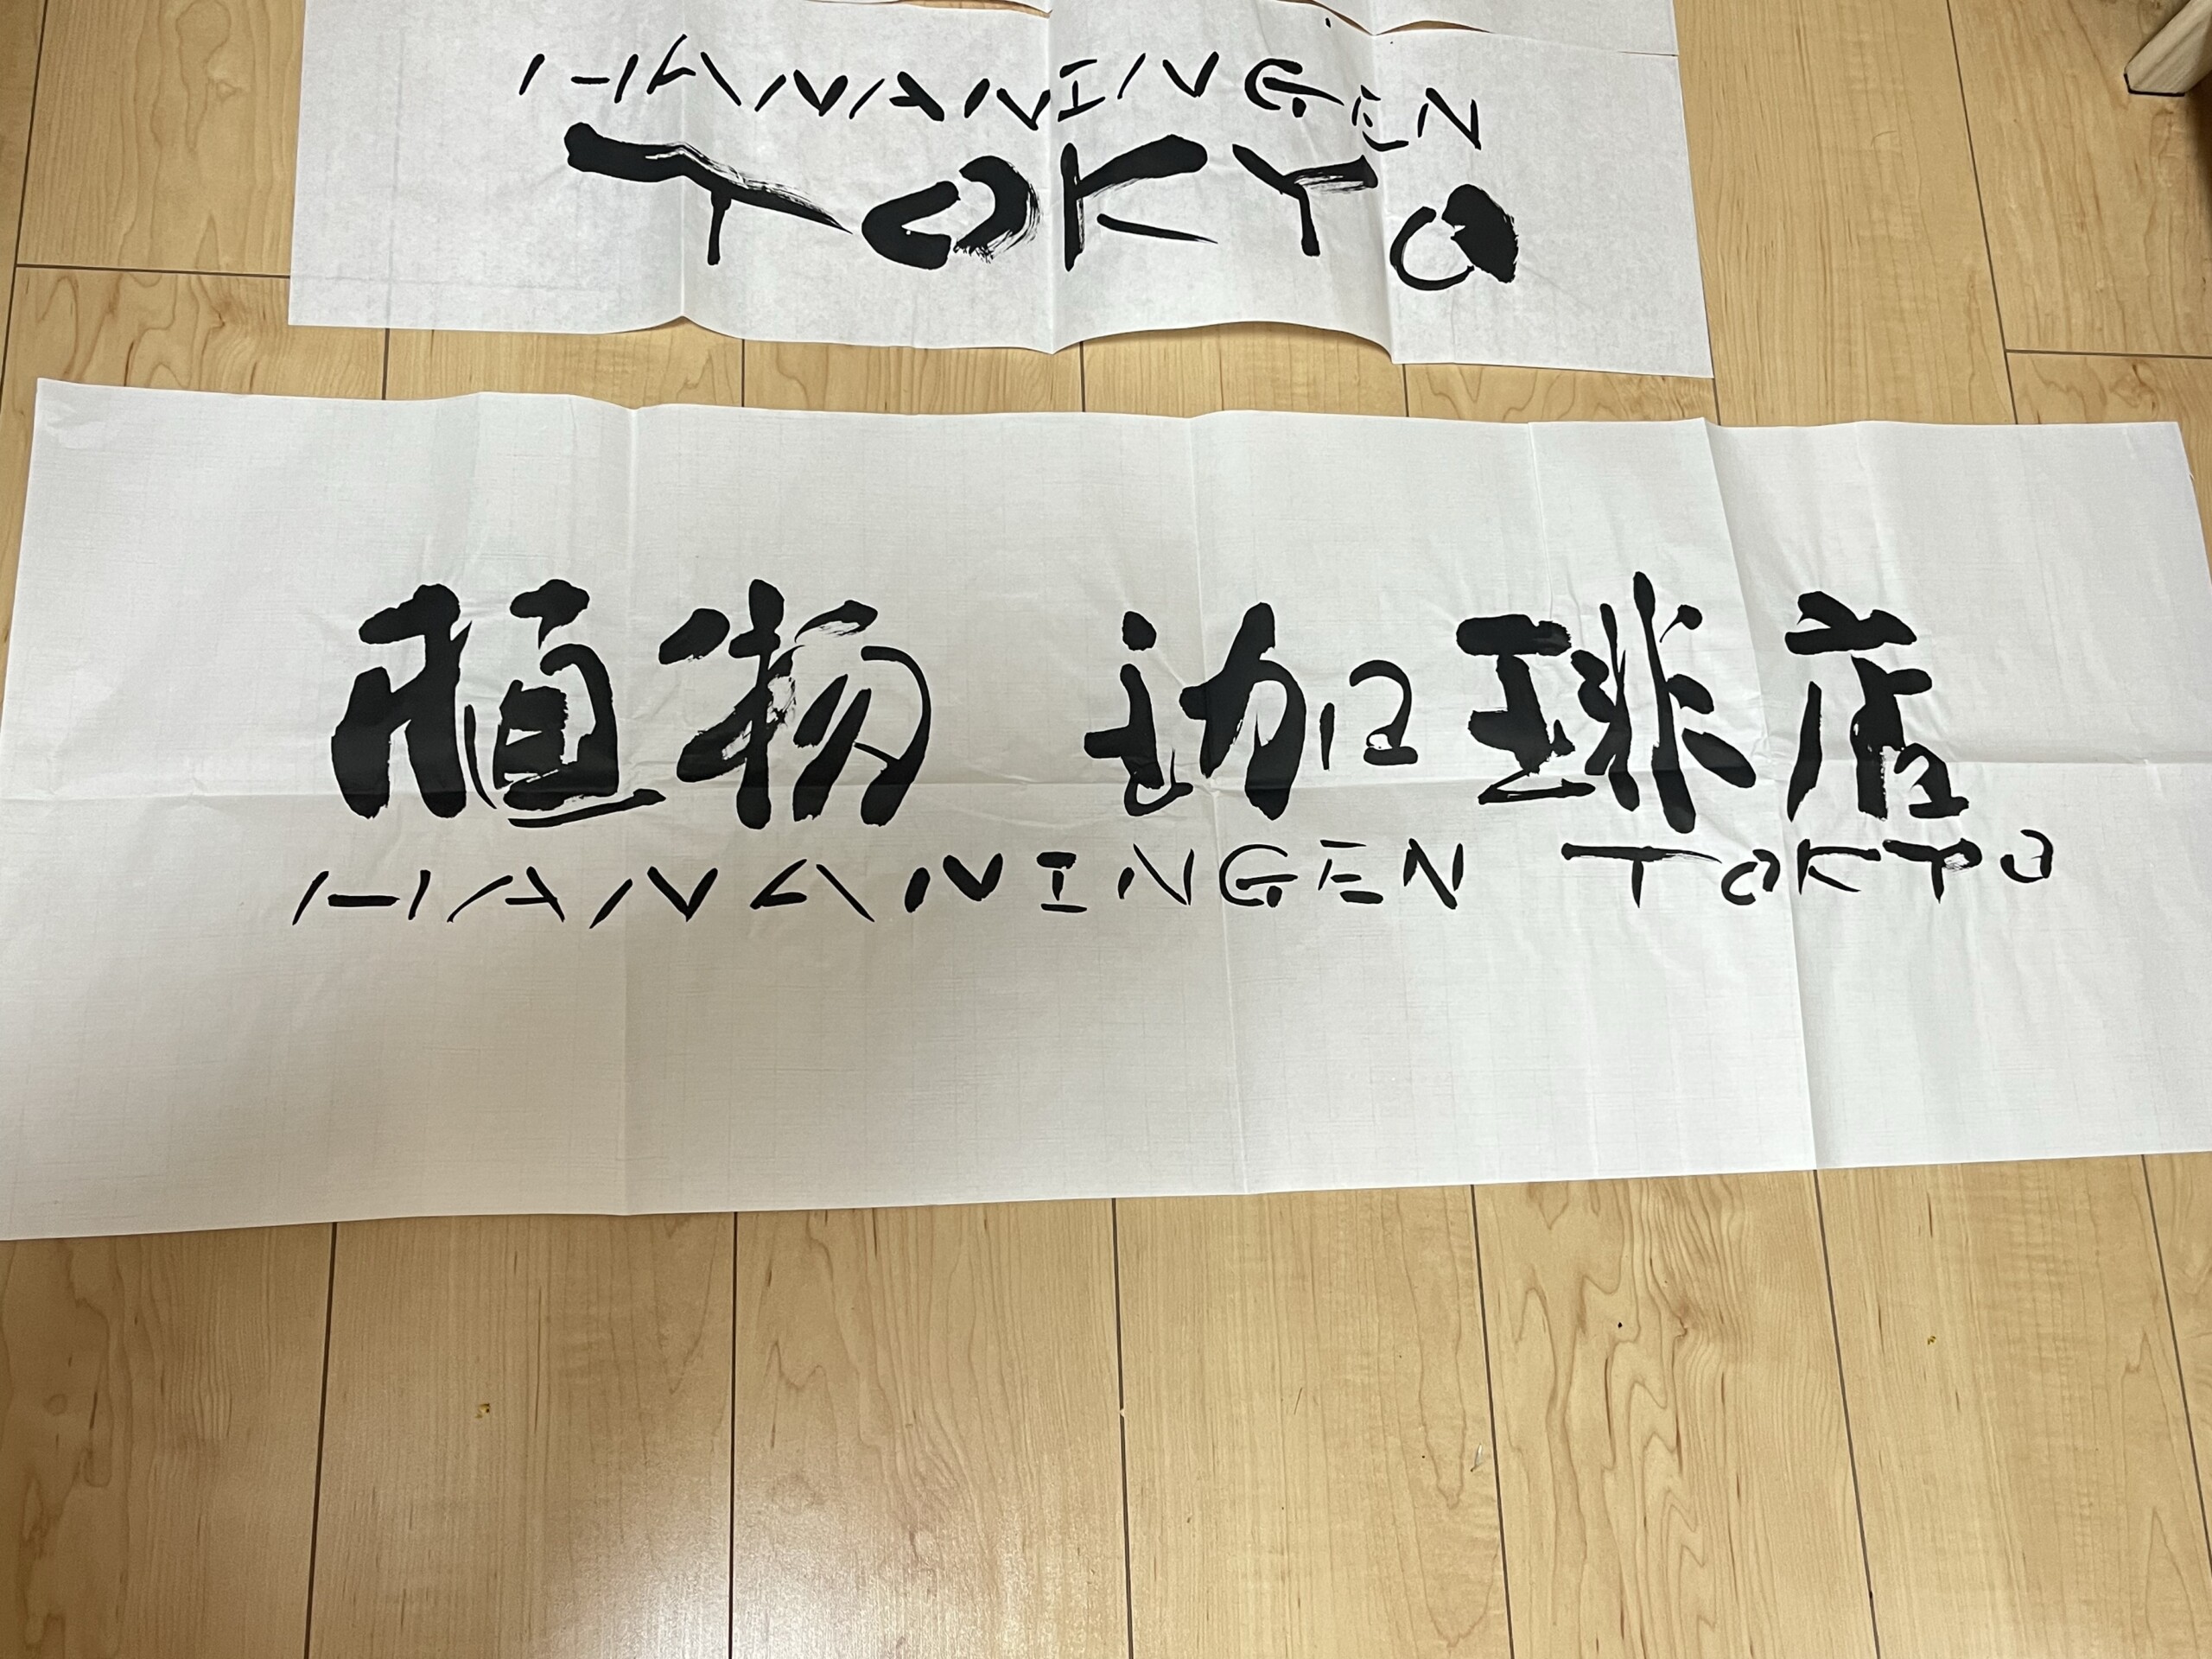 HANANINGEN
TOKYO
植物 珈琲店
HANANINGEN TOKYO